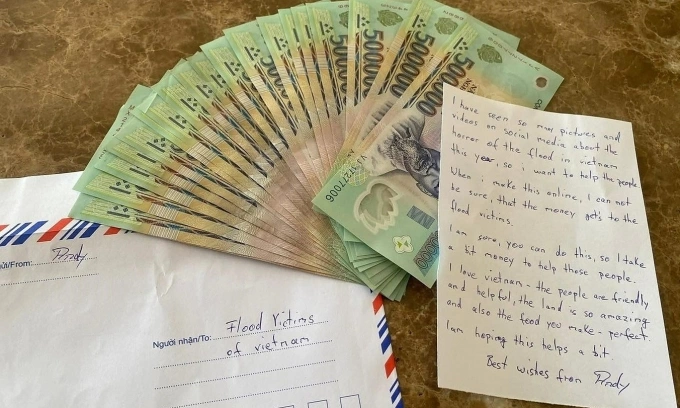 500000
500000
500000
500000
VJ 37277006
I have seen so many pictures and
videos on social media about the
horror of the flood in vietnam
this year, so i want to help the people
When i make this online, I can not
be sure, that the money gets to the
flood victims.
I am sure, you can do this, so I take
a bit money to help those people.
I love vietnam - the people are friendly
and helpful, the land is so amazing
and also the food you make - perfect
I am hoping this helps a bit.
Best wishes from Andy
ửi/From: Andy
Người nhận/To: Flood Victims
of vietnam